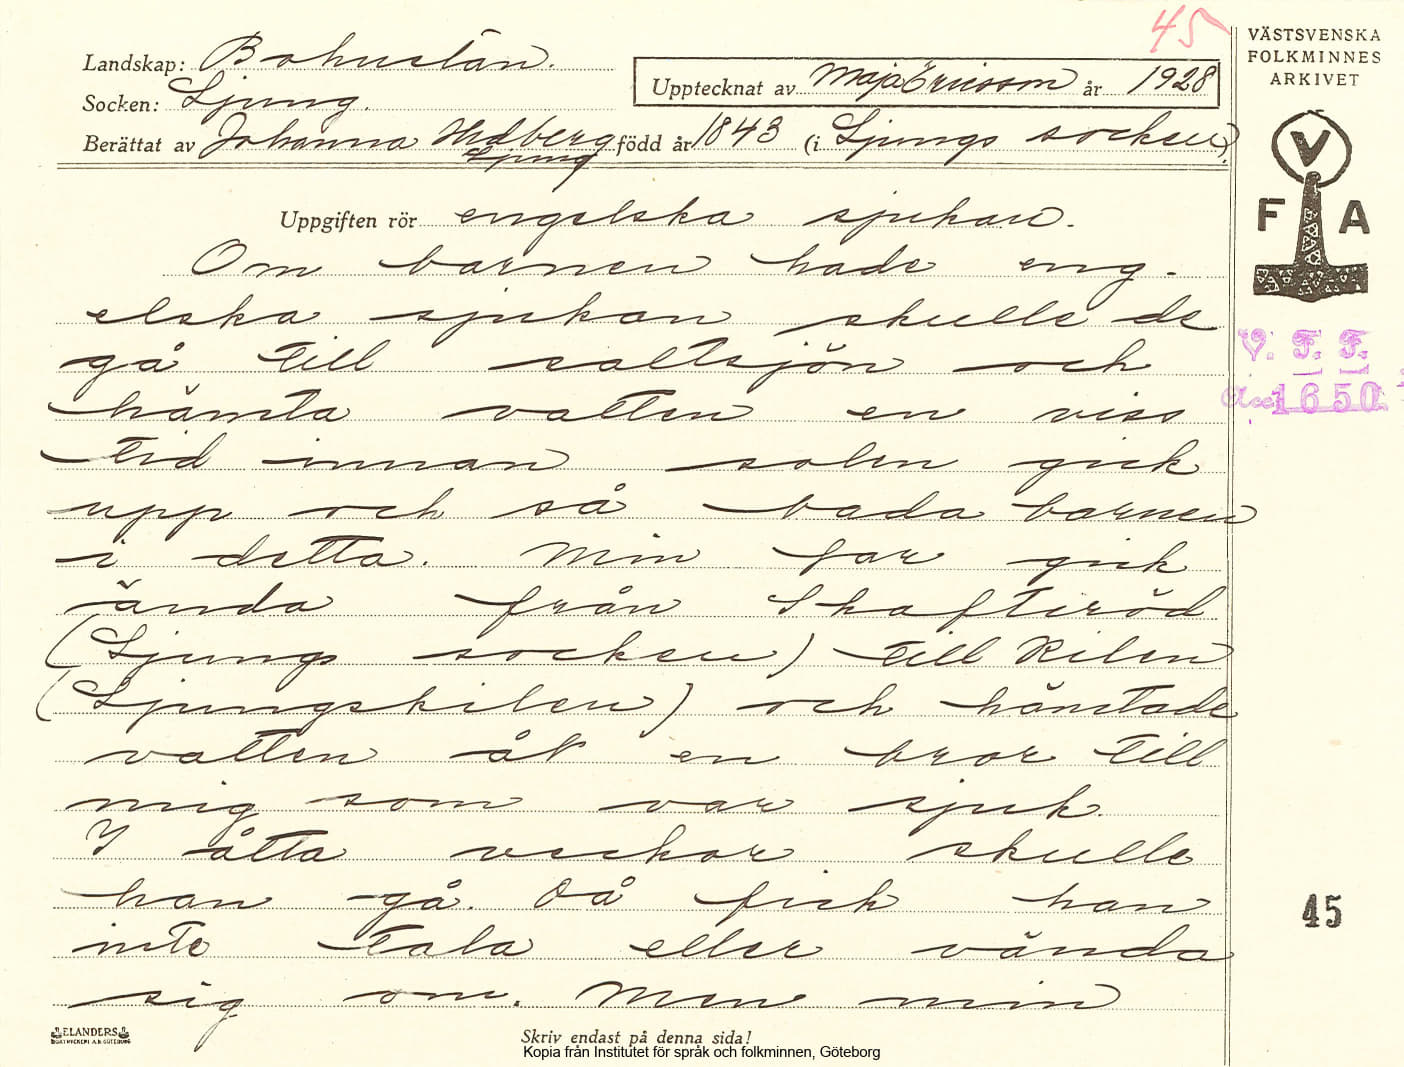 45
Landskap: Bohuslän.
Socken: Ljung.
Upptecknat av Maja Ericson år 1928
Berättat av Johanna Hedberg född år 1843 (i Ljungs socken).
Ljung
Uppgiften rör engelska sjukan.
Om barnen hade eng-
elska sjukan skulle de
gå till saltsjön och
hämta vatten en viss
tid innan solen gick
upp och så bada barnen
i detta. Min far gick
ända från Skafteröd
(Ljungs socken) till Kilen
(Ljungskilen) och hämtade
vatten åt en bror till
mig som var sjuk.
I åtta veckor skulle
han gå. Då fick han
inte tala eller vända
sig om. Men min
ELANDERS
BOKTRYCKERI A.B. GÖTEBORG
Skriv endast på denna sida!
Kopia från Institutet för språk och folkminnen, Göteborg
VÄSTSVENSKA
FOLKMINNES
ARKIVET
V
F A
V. F. F.
Acc. 1650
45